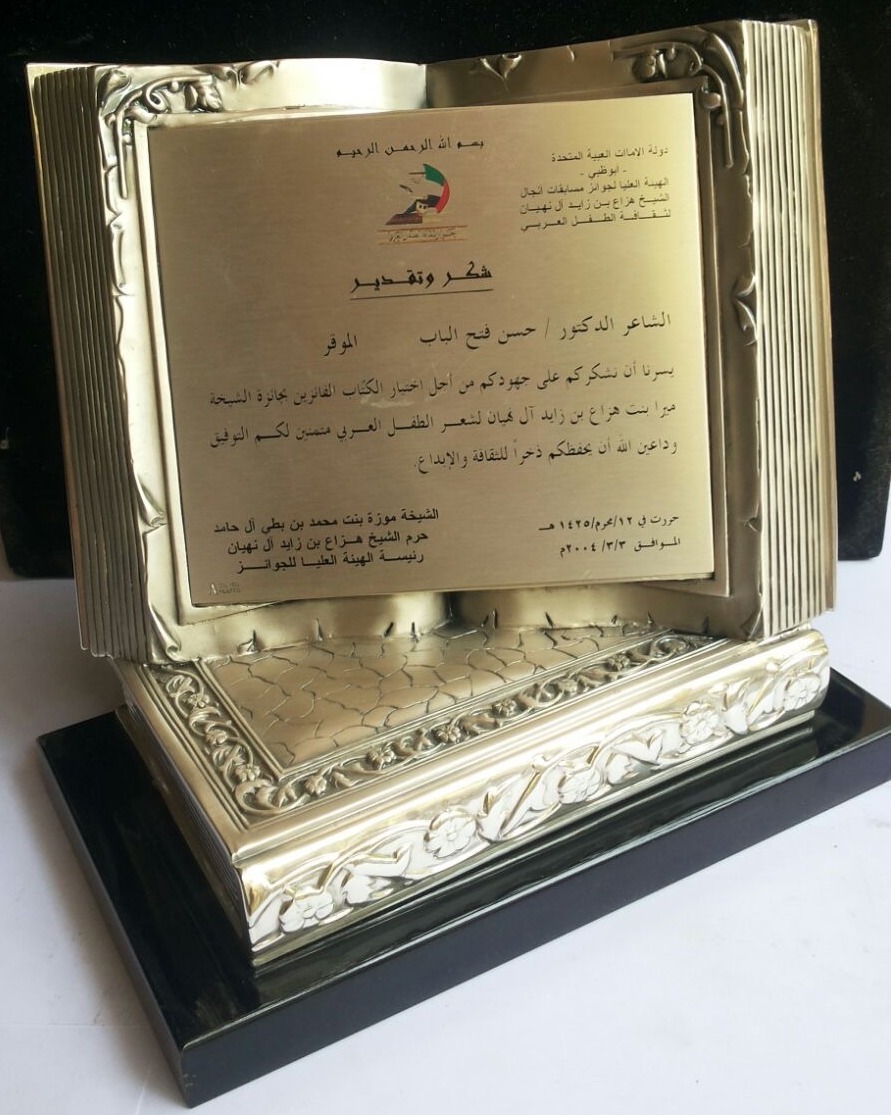 بسم الله الرحمن الرحيم
دولة الامات العبية المتحدة
- ابوظبي -
الهيئة العليا لجوائز مسابقات أنجال
الشيخ هزاع بن زايد آل نهيان
لثقافة الطفل العربي
شكر وتقدير
الشاعر الدكتور / حسن فتح الباب الموقر
يسرنا أن نشكركم على جهودكم من أجل اختيار الكتاب الفائزين بجائزة الشيخة
ميرا بنت هزاع بن زايد آل نهيان لشعر الطفل العربي متمنين لكم التوفيق
وداعين الله أن يحفظكم ذخراً للثقافة والإبداع.
حررت في ١٢/محرم/١٤٢٥ هـ
الموافق ٢٠٠٤/٣/٣م
الشيخة موزة بنت محمد بن بطي آل حامد
حرم الشيخ هزاع بن زايد آل نهيان
رئيسة الهيئة العليا للجوائز